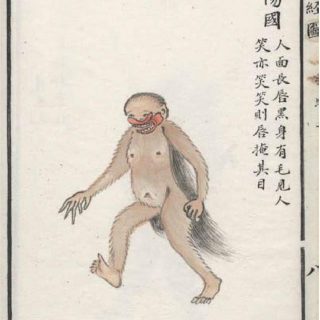 經圖
八
國
人面長唇黑身有毛見人
笑亦笑笑則唇掩其目